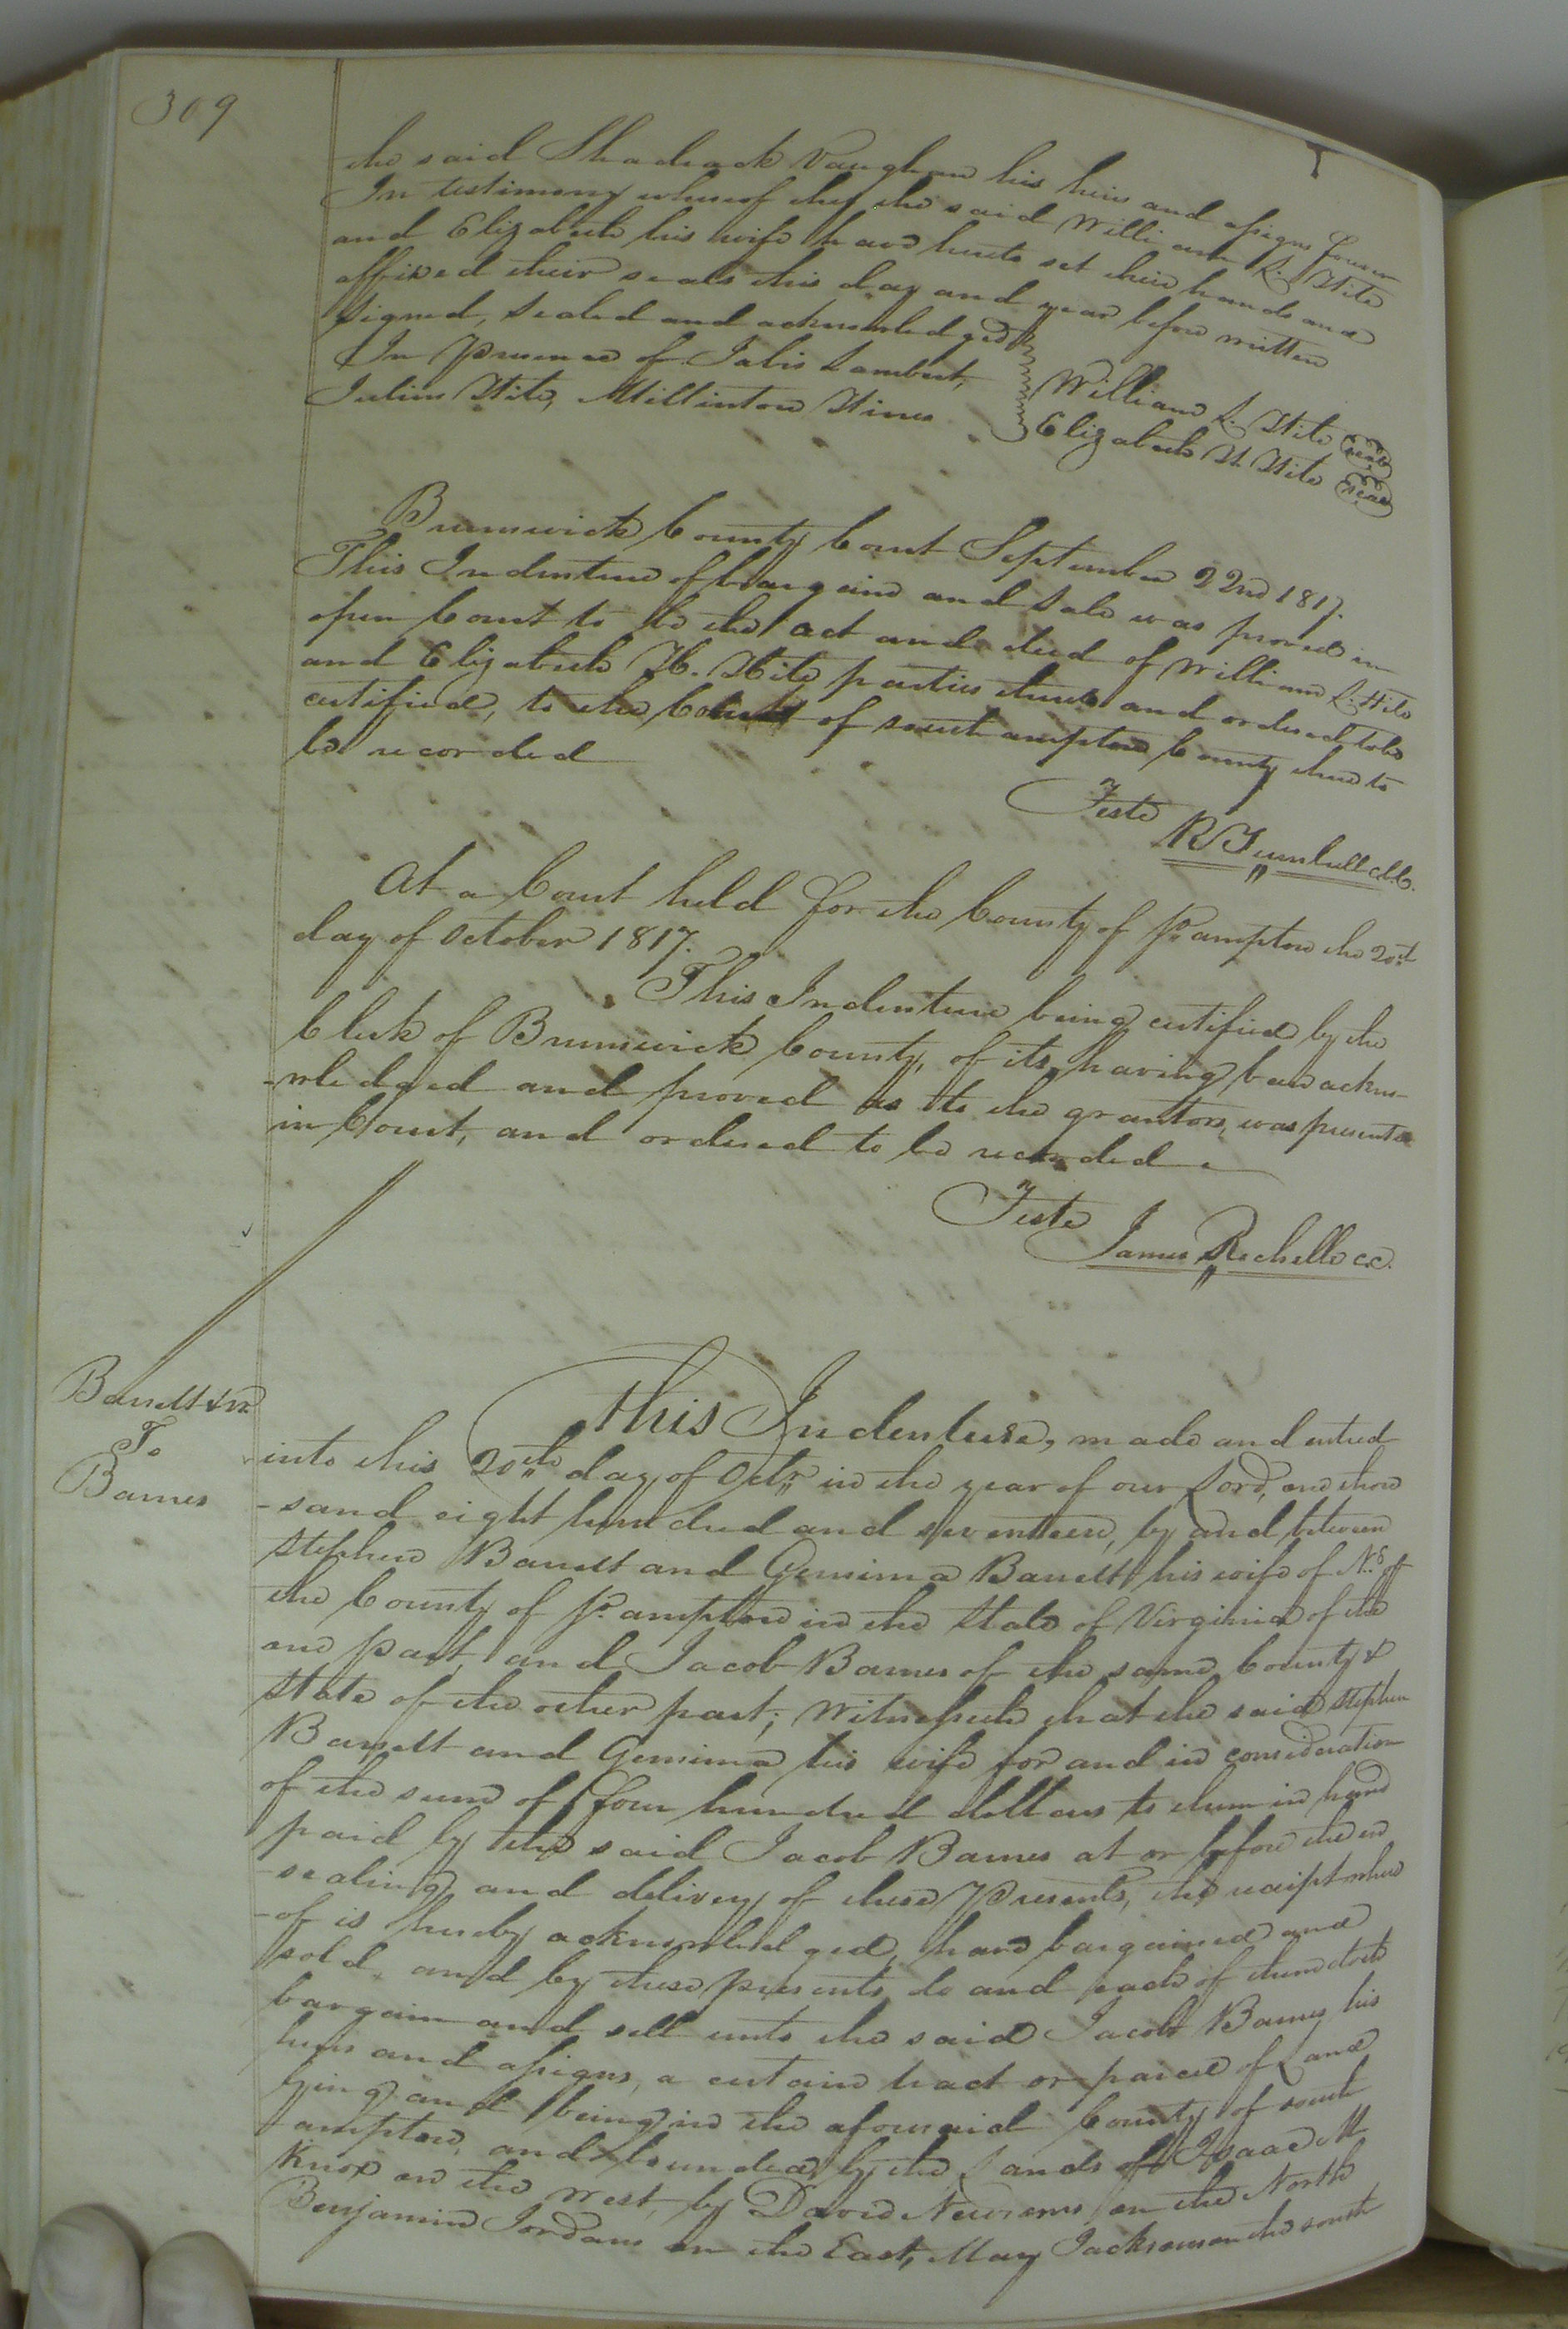 309
the said Shadrack Vaughan his heirs and assigns forever
In testimony whereof they the said William L. Hite
and Elizabeth his wife have hereto set their hands and
affixed their seals this day and year before written
Signed, Sealed and acknowledged
In Presence of Jabis Lambert,
Julius Hite, Millinton Hines
William L. Hite Seal
Elizabeth H. Hite Seal
Brunswick County Court September 22nd 1817.
This Indenture of bargain and Sale was proved in
open Court to be the act and deed of William L. Hite
and Elizabeth H. Hite parties thereto and ordered to be
certified, to the Court of southampton County there to
be recorded
Teste
R Turnbull ClC.
At a Court held for the County of So ampton the 20th
day of October 1817.
This Indenture being certified by the
Clerk of Brunswick County, of its having been ackno-
-wledged and proved as to the grantors, was presented
in Court, and ordered to be recorded
Teste
James Rochelle cc.
Barrett & ux
To
Barnes
This Indenture, made and entred
into this 20th day of Octr in the year of our Lord, one thou
-sand eight hundred and seventeen, by and between
Stephen Barrett and Gemima Barrett his wife of
the County of So ampton in the State of Virginia of the
one part, and Jacob Barnes of the same County &
State of the other part; Witnesseth that the said Stephen
Barrett and Gemima his wife for and in consideration
of the sum of four hundred dollars to them in hand
paid by the said Jacob Barnes at or before the en
-sealing and delivery of these Presents, the receipt where
-of is hereby acknowledged, have bargained and
sold, and by these presents do and each of them doth
bargain and sell unto the said Jacob Barnes his
heirs and assigns, a certain tract or parcel of Land
lying and being in the aforesaid County of south
ampton, and bounded by the Lands of Isaac M
Knox on the West, by David Newsoms on the North
Benjamin Jordans on the East, Mary Jacksons on the south